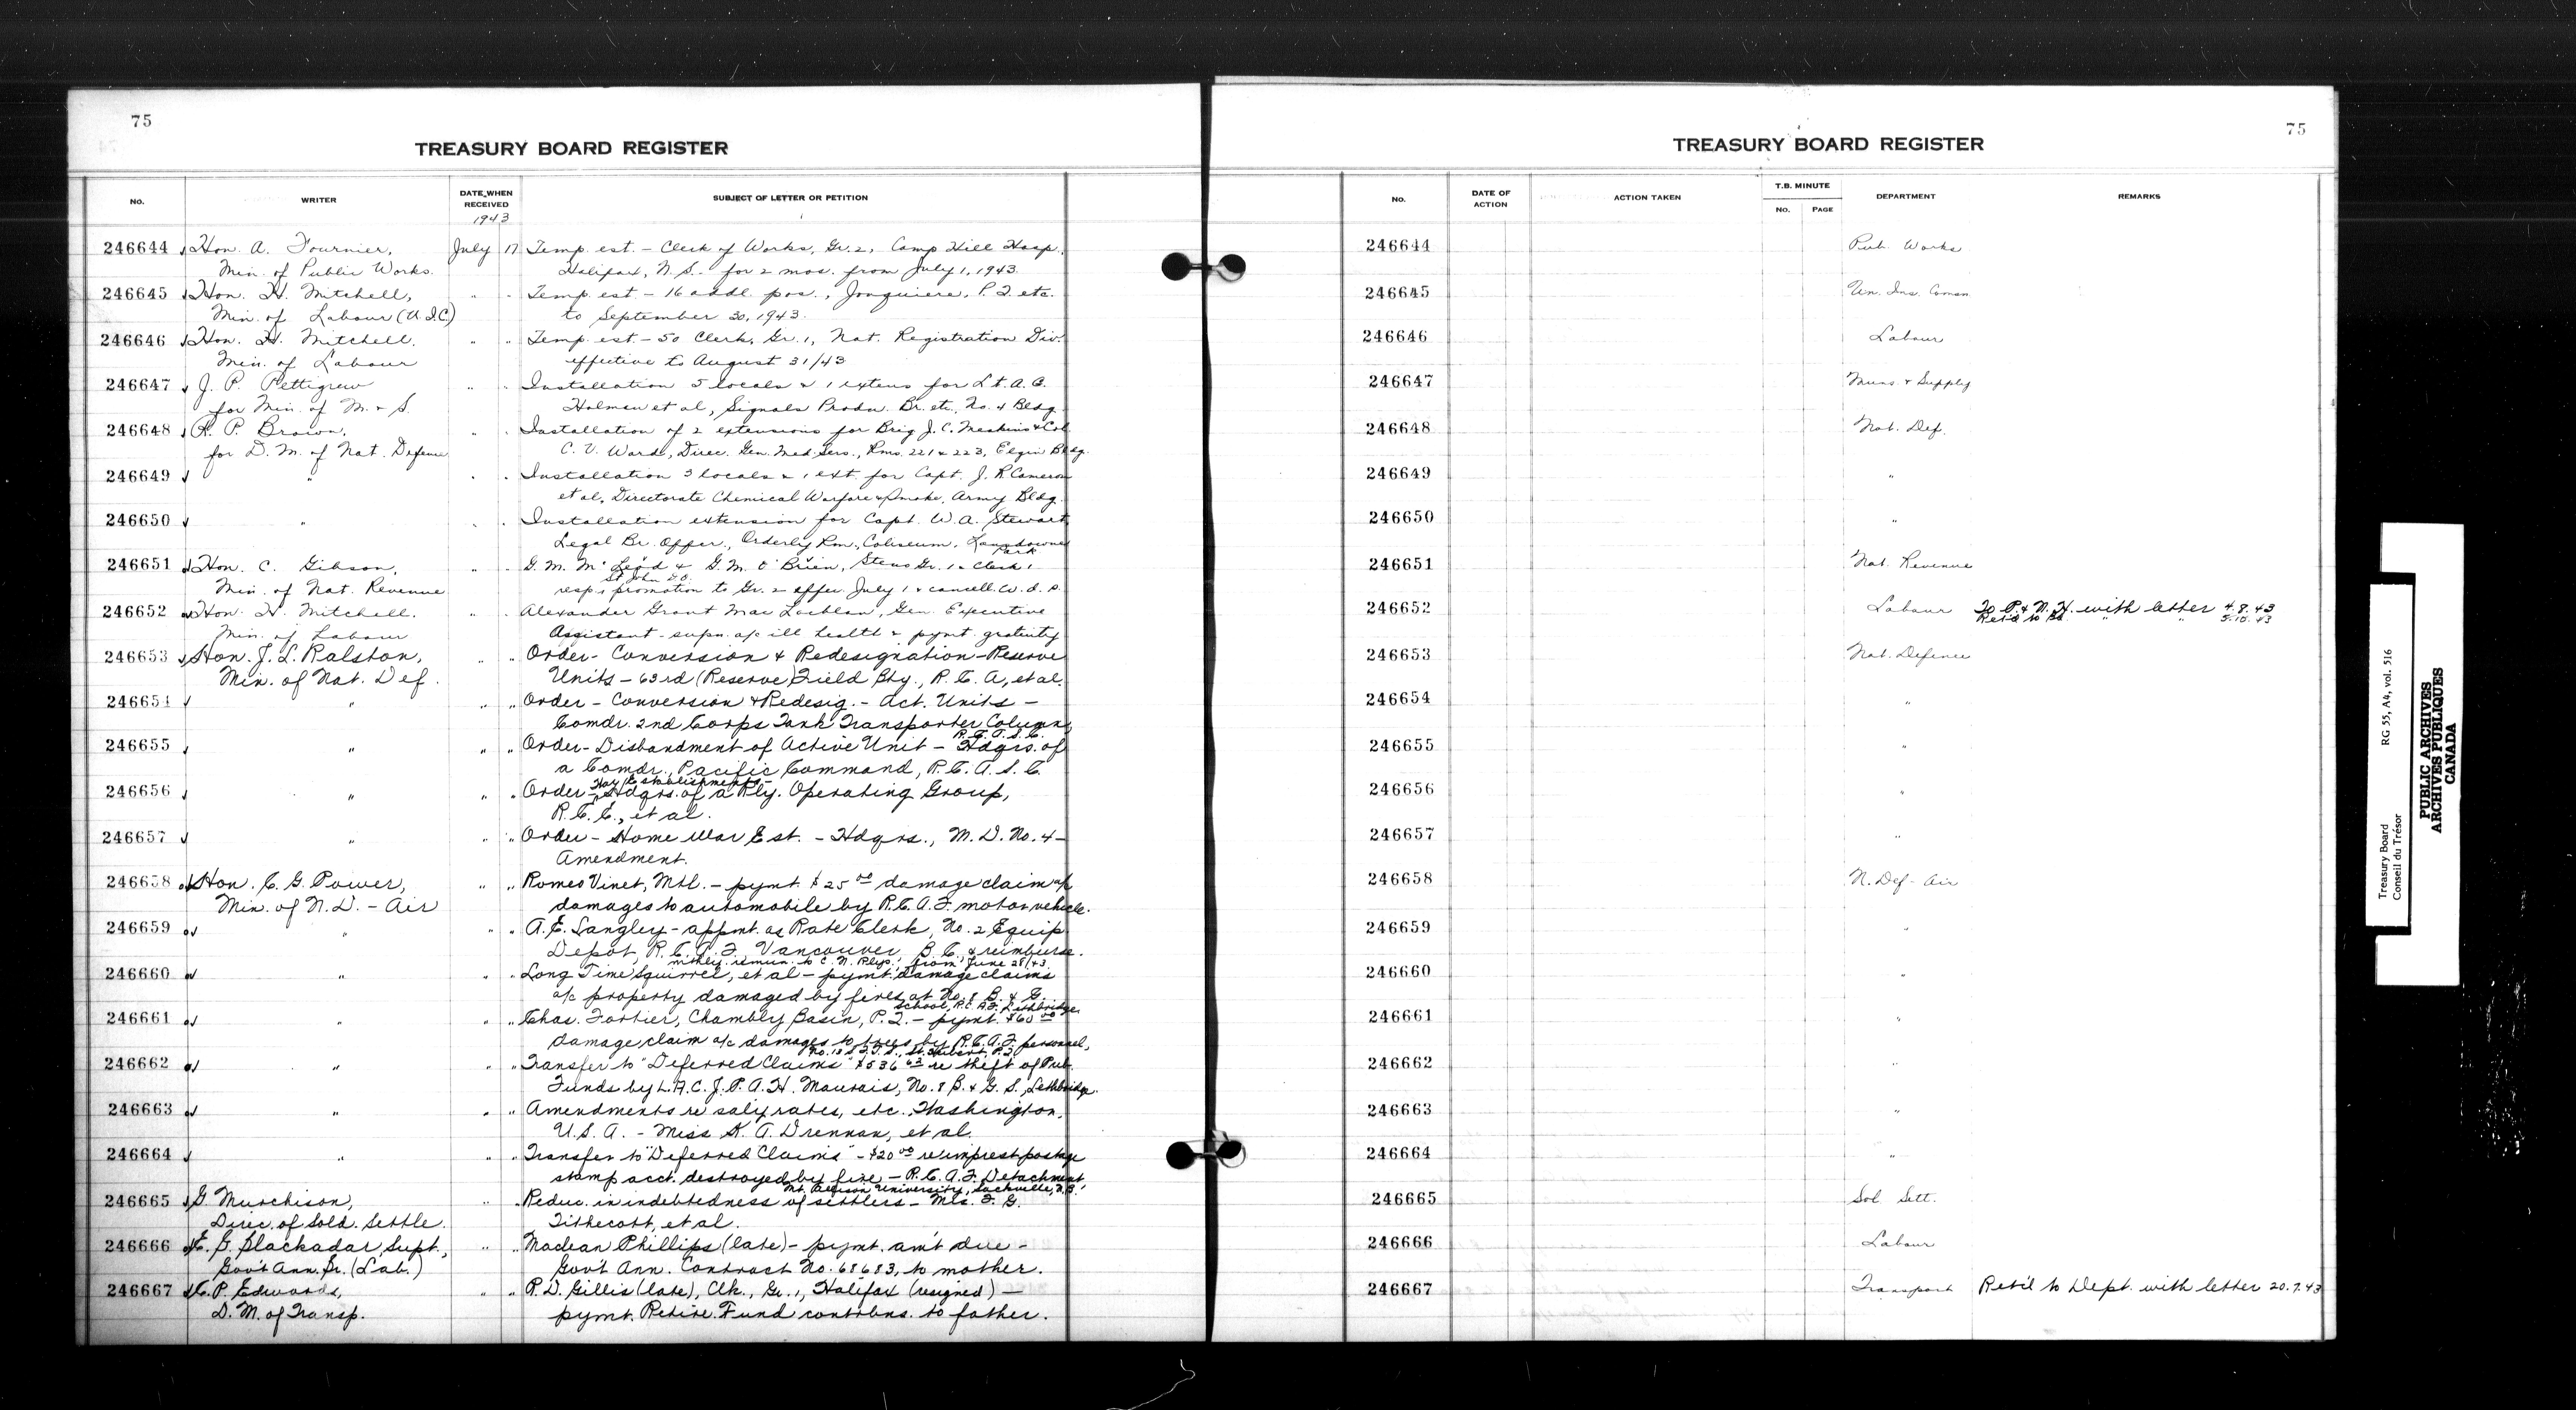 75
TREASURY BOARD REGISTER
No. WRITER DATE WHEN RECEIVED SUBJECT OF LETTER OR PETITION
1943
246644 Hon. A. Fournier, July 17 Temp. est. - Clerk of Works, Gr. 2, Camp Hill Hosp.
Min. of Public Works. Halifax, N.S. for 2 mos. from July 1, 1943.
246645 Hon. H. Mitchell, " " Temp. est - 16 addl. pos., Jonquiere, P.Q. etc.
Min. of Labour (U.I.C.) to September 30, 1943.
246646 Hon. H. Mitchell. " " Temp. est - 50 Clerk, Gr. 1, Nat. Registration Div.
Min. of Labour effective to August 31/43
246647 J. P. Pettigrew " " Installation 5 locals & 1 extens for Lt. A. C.
for Min. of M. & S. Holman et al, Signals Produ. Br. etc., No. 4 Bldg.
246648 R. P. Brown, " " Installation of 2 extensions for Brig J. C. Meakins & Col
for D. M. of Nat. Defence C. V. Ward, Direc. Gen. Med. Serv., Rms. 221 & 223, Elgin Bldg.
246649 " " " Installation 3 locals & 1 ext. for Capt. J. R. Cameron
et al, Directorate Chemical Warfare & Smoke, Army Bldg.
246650 " " " Installation extension for Capt. W. A. Stewart
Legal Br. Offcr., Orderly Rm., Coliseum, Lansdowne
Park
246651 Hon. C. Gibson, " " G. M. McLeod & G. M. O'Brien, Steno Gr. 1 & Clerk 1
St John
Min. of Nat. Revenue resp., promotion to Gr. 2 effec. July 1 & cancell. W. d. s.
246652 Hon. H. Mitchell. " " Alexander Grant MacLachlan, Gen. Executive
Min. of Labour Assistant - supn. a/c ill health & pymt. gratuity
246653 Hon. J. L. Ralston, " " Order - Conversion & Redesignation - Reserve
Min. of Nat. Def. Units - 63rd (Reserve) Field Bty., R.C.A., et al.
246654 " " " Order - Conversion & Redesig. - Act. Units -
Comdr. 2nd Corps Tank Transporter Column,
R.C.A.S.C.
246655 " " " Order - Disbandment of Active Unit - Hdqrs. of
a Comdr., Pacific Command, R.C.A.S.C.
War Establishments -
246656 " " " Order - Hdqrs. of a Rly. Operating Group,
R.C.E., et al.
246657 " " " Order - Home War Est. - Hdqrs., M.D. No. 4 -
Amendment.
246658 Hon. C. G. Power, " " Romeo Vinet, Mtl. - pymt. $25 00 damage claim a/c
Min. of N.D. - Air damages to automobile by R.C.A.F. motor vehicle.
246659 " " " A. E. Langley - appmt. as Rate Clerk, No. 2 Equip
Depot, R.C.A.F. Vancouver, B.C., & reimburse.
mthly. remun. to C.N. Rlys., from June 28/43
246660 " " " Long Time Squirrel, et al - pymt. damage claims
a/c property damaged by fires at No. 8 B. & G.
School, R.C.A.F. Lethbridge
246661 " " " Chas. Fortier, Chambly Basin, P.Q. - pymt. $60 00
damage claim a/c damages to trees by R.C.A.F. personnel,
No. 13 S.F.T.S., St. Hubert, P.Q.
246662 " " " Transfer to "Deferred Claims" $536 63 re theft of Pub.
Funds by L.A.C. J. P. A. H. Maurais, No. 8 B. & G. S., Lethbridge.
246663 " " " Amendments re saly. rates, etc., Washington,
U.S.A. - Miss K. A. Drennan, et al.
246664 " " " Transfer to "Deferred Claims" - $20 00 re imprest postage
stamp acct. destroyed by fire - R.C.A.F. Detachment,
Mt. Allison University, Sackville, N.B.
246665 G. Murchison, " " Reduc. in indebtedness of settlers - Mls. F. G.
Direc. of Sold. Settle. Tithecott, et al.
246666 E. G. Blackadar, Supt., " " Maclean Phillips (late) - pymt. am't due -
Gov't Ann. Br. (Lab.) Gov't Ann. Contract No. 68683, to mother.
246667 C. P. Edwards, " " P. D. Gillis (late), Clk., Gr. 1, Halifax (resigned) -
D. M. of Transp. pymt. Retire. Fund contrbns. to father.
75
TREASURY BOARD REGISTER
No. DATE OF ACTION ACTION TAKEN T.B. MINUTE No. PAGE DEPARTMENT REMARKS
246644 Pub. Works
246645 Un. Ins. Comsn
246646 Labour
246647 Muns. & Supply
246648 Nat. Def.
246649 "
246650 "
246651 Nat. Revenue
246652 Labour To P. & N. H. with letter 4.8.43
Ret'd to Bd. " " 5.10.43
246653 Nat. Defence
246654 "
246655 "
246656 "
246657 "
246658 N. Def - Air
246659 "
246660 "
246661 "
246662 "
246663 "
246664 "
246665 Sol. Sett.
246666 Labour
246667 Transport Ret'd to Dept. with letter 20.7.43
Treasury Board RG 55, A4, vol. 516
Conseil du Trésor
PUBLIC ARCHIVES
ARCHIVES PUBLIQUES
CANADA